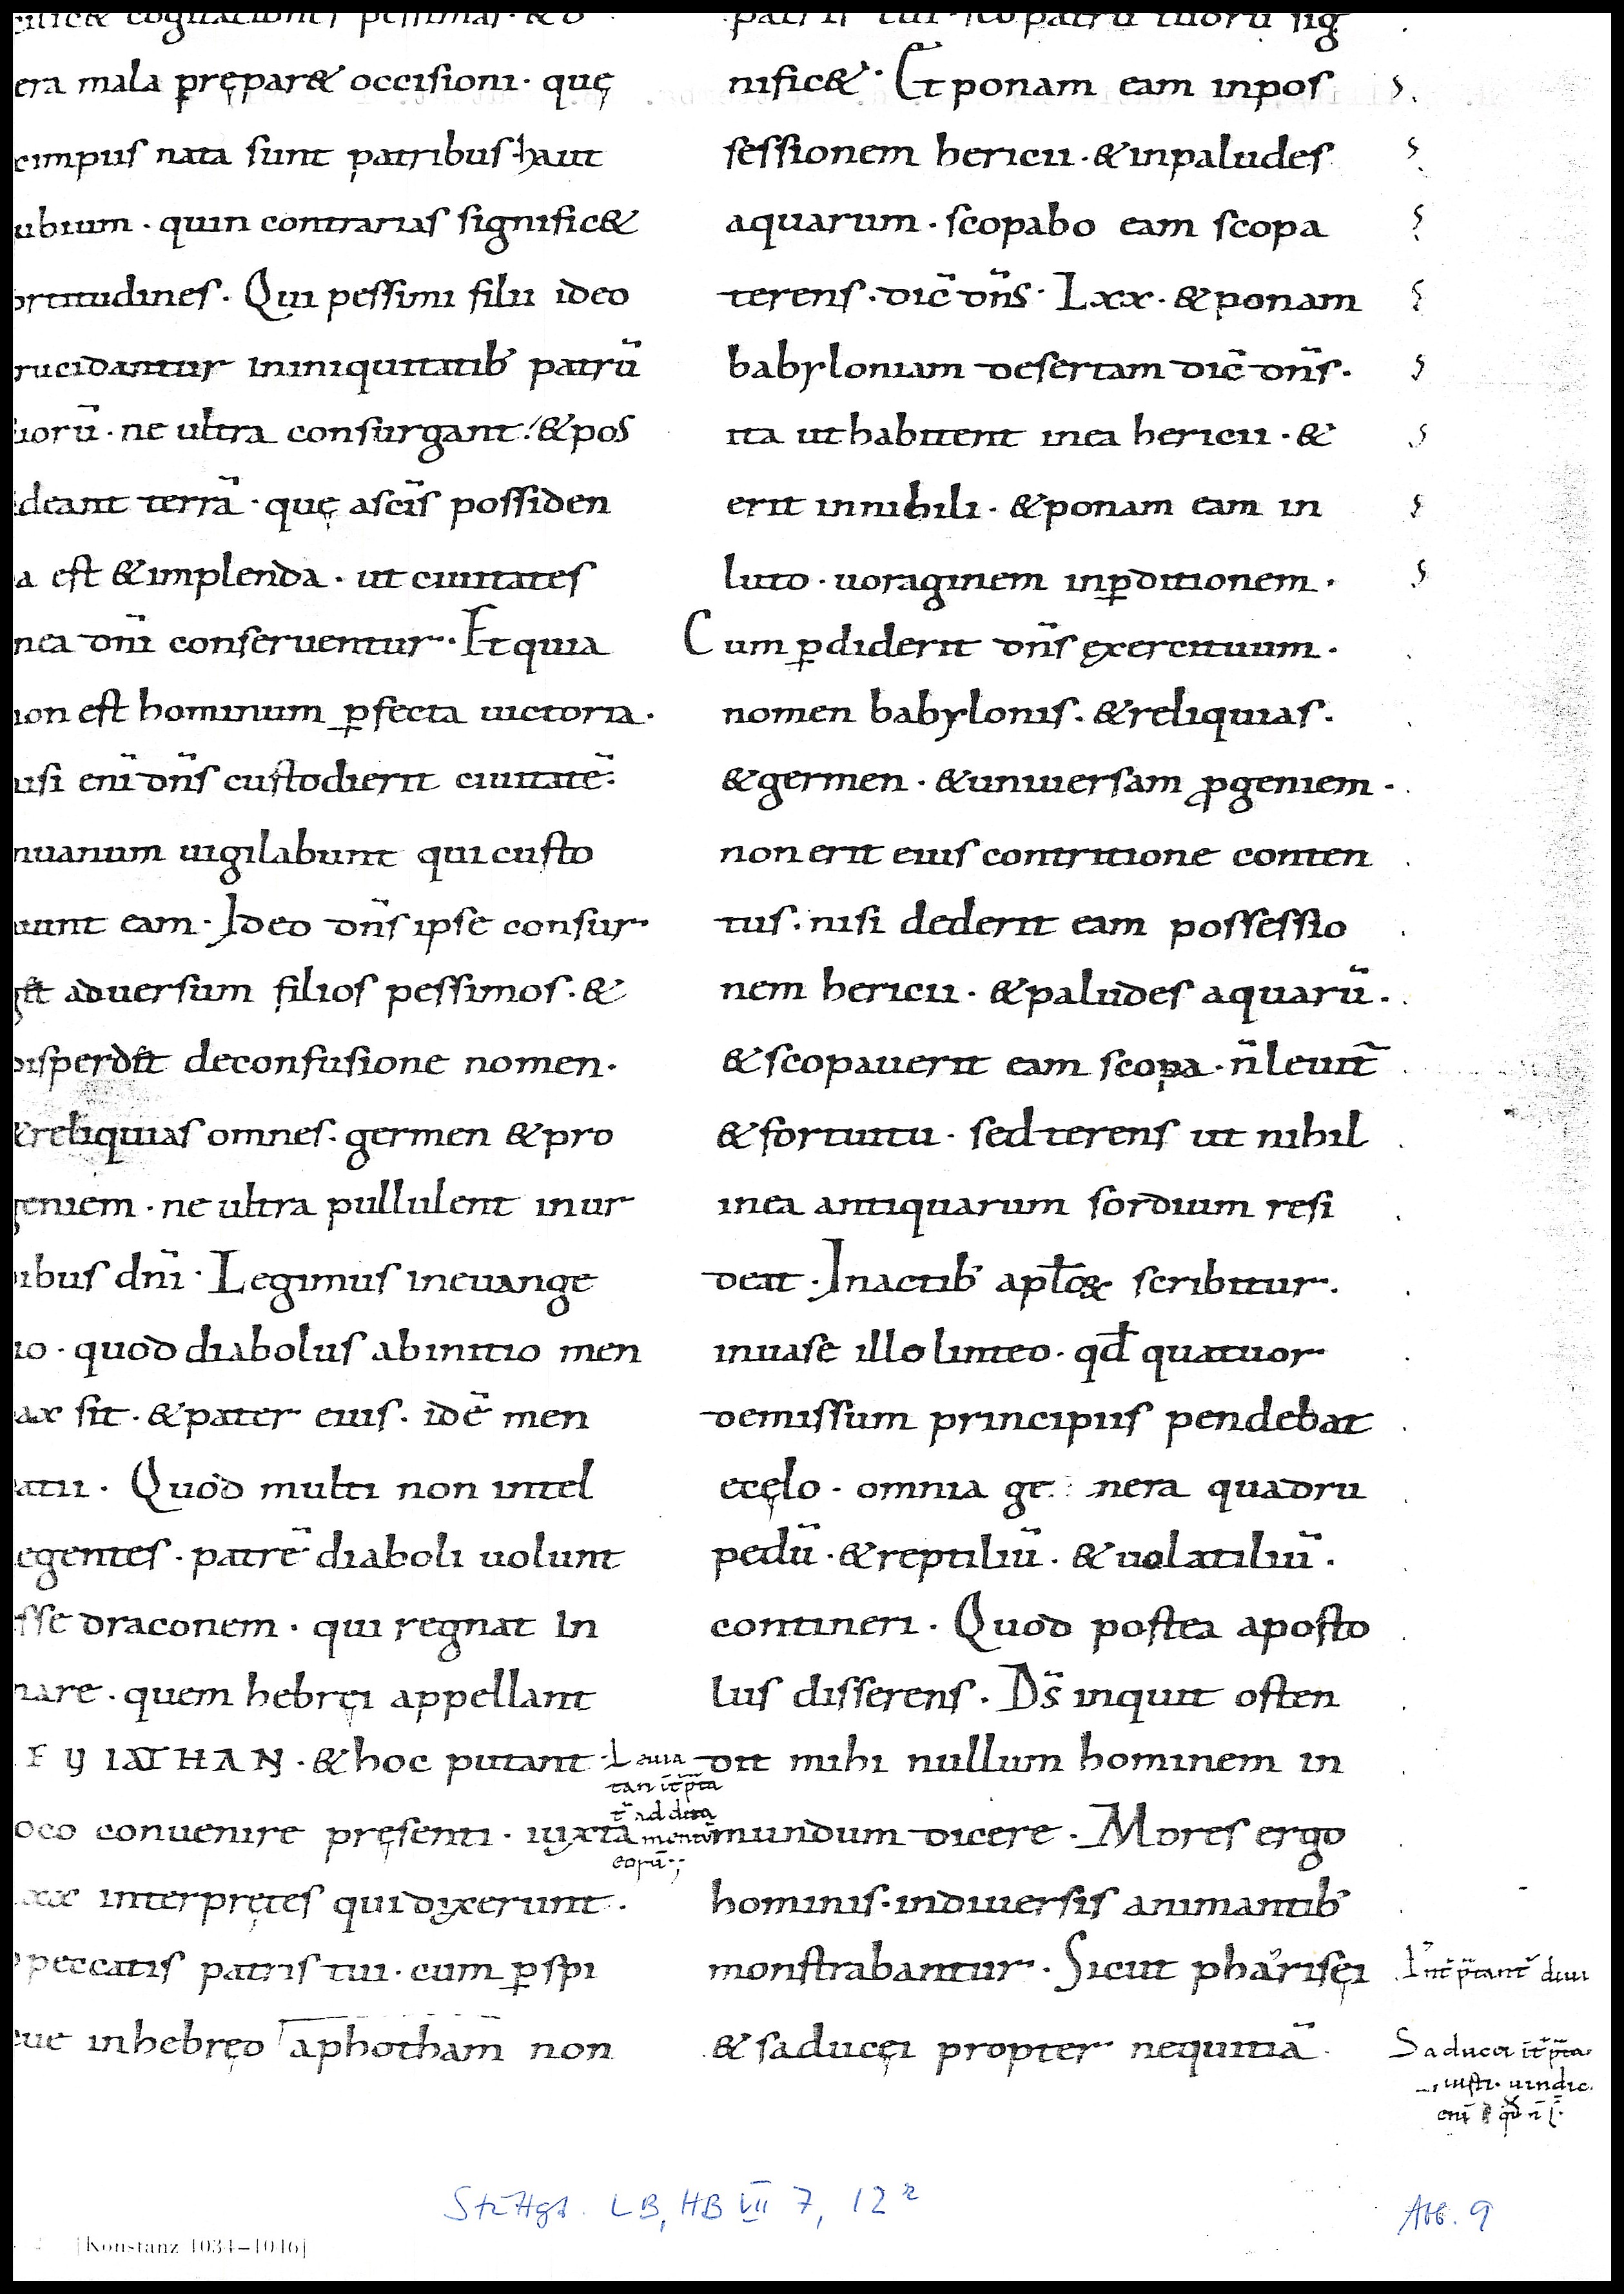 era mala p̄rępar& occisioni · quę
cimpiis nata sunt patribus · haut
ubium · quin contrarias signific&
ortitudines · Qui pessimi filii ideo
rucidantur ininiquitatib' patrū
uorū · ne ultra consurgant · &pos
deant terrā · quę ascīs possiden
a est &implenda · ut ciuitates
nea dn̄i conseruentur · Et quia
ion est hominum ꝑfecta uictoria ·
isi enī dn̄s custodierit ciuitatē ·
nuanum uigilabunt qui custo
iunt eam · Ideo dn̄s ipse consur
g&  aduersum filios pessimos · &
disperdet deconfusione nomen ·
&reliquias omnes · germen &pro
geniem · ne ultra pullulent inur
ibus dn̄i · Legimus ineuange
io · quod diabolus abinitio men
ax sit · &pater eius · idē men
atii · Quod multi non intel
egentes · patrē diaboli uolunt
sse draconem · qui regnat in
nare · quem hebręi appellant
IATHAN · &hoc putant
oco conuenire pręsenti · iuxta
xx interprętes qui dixerunt ·
peccatis patris tui · cum ꝑspi
cue inhebręo aphotham non
Leuia
tan it̄p̄ta
t̄ addita
mentū
eorū
patris tui · seo patrū tuorū sig
nific& · Et ponam eam inpos
sessionem hericii · &inpaludes
aquarum · scopabo eam scopa
terens · dic̄ dn̄s · Lxx · &ponam
babyloniam desertam dic̄ dn̄s ·
ita uthabitent inea hericii · &
erit innihili · &ponam eam in
luto · uoraginem inꝑditionem ·
Cum ꝑdiderit dn̄s exercituum ·
nomen babylonis · &reliquias ·
&germen · &uniuersam ꝓgeniem ·
non erit eius contritione conten
tus · nisi dederit eam possessio
nem hericii · &paludes aquarū ·
&scopauerit eam scopa · n̄ leuit̄
&fortuitu · sed terens ut nihil
inea antiquarum sordium resi
deat · Inactib' apl̄oꝝ scribitur ·
inuase illo linteo · qd̄ quatuor
demissum principiis pendebat
ecęlo · omnia ge nera quadru
pedū · &reptiliū · &uolatiliū ·
contineri · Quod postea aposto
lus disserens · Ds̄ inquit osten
dit mihi nullum hominem in
mundum dicere · Mores ergo
hominis · indiuersis animantib'
monstrabantur · Sicut pharisęi
&saducęi propter nequitiā ·
Int̄p̄tant̄ diui
Saducei it̄p̄ta
iusti · uindic
enī qd̄ n̄
Stuttgt. LB, HB VII 7, 12r
Abb. 9
[Konstanz 1034–1046]